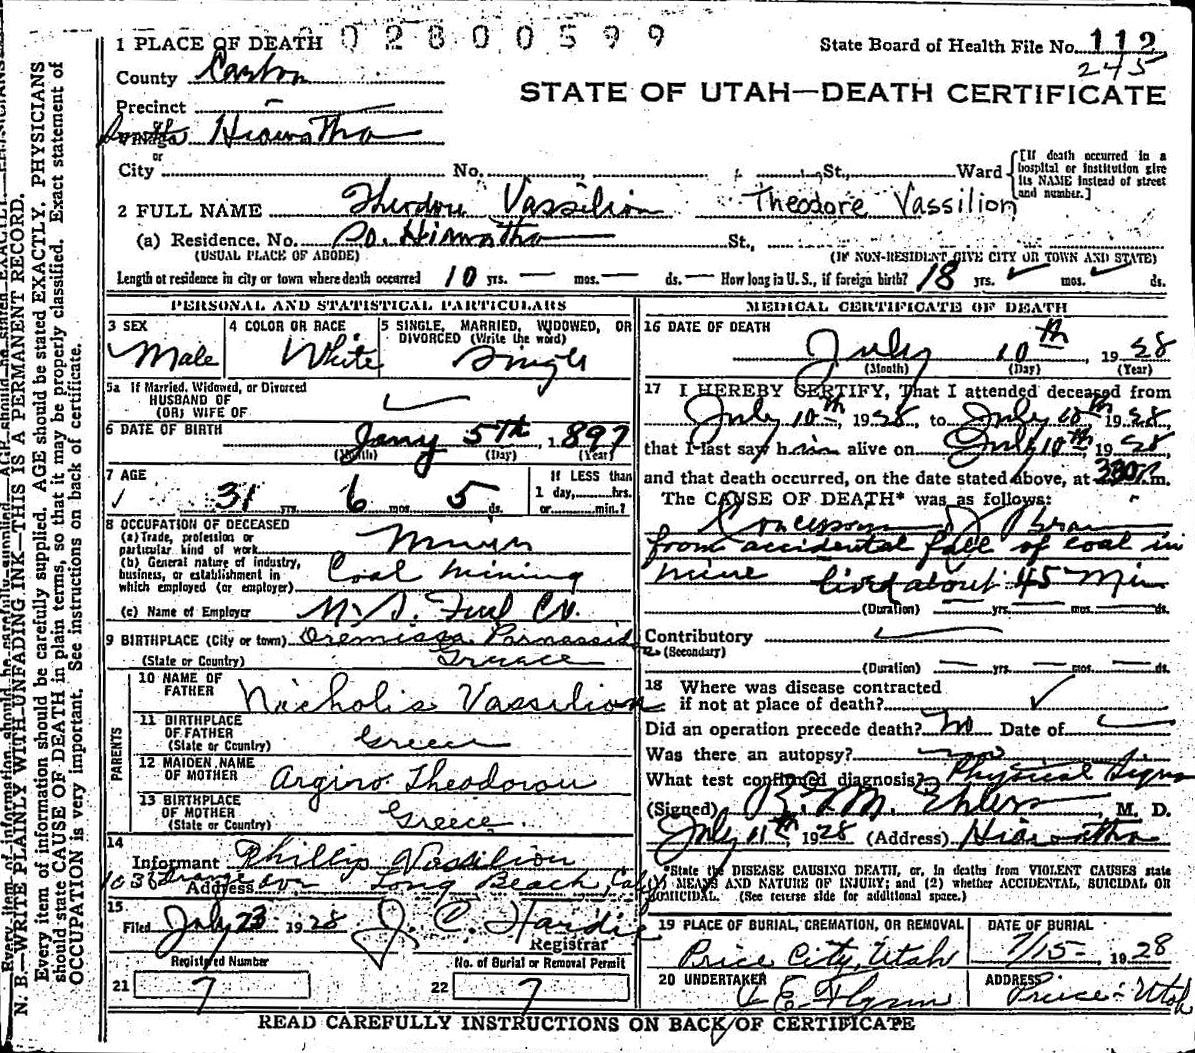 02800599
1 PLACE OF DEATH
State Board of Health File No. 112
245
County Carbon
STATE OF UTAH—DEATH CERTIFICATE
Precinct –
or
Village South Hiawatha
or
City No. St., Ward {[If death occurred in a hospital or institution give its NAME instead of street and number.]
2 FULL NAME Theodore Vassilion Theodore Vassilion
(a) Residence. No. So. Hiawatha St.,
(USUAL PLACE OF ABODE) (IF NON-RESIDENT GIVE CITY OR TOWN AND STATE)
Length of residence in city or town where death occurred 10 yrs. — mos. — ds. — How long in U.S., if foreign birth? 18 yrs. ✓ mos. ✓ ds.
PERSONAL AND STATISTICAL PARTICULARS
3 SEX
Male
4 COLOR OR RACE
White
5 SINGLE, MARRIED, WIDOWED, OR DIVORCED (Write the word)
Single
5a If Married, Widowed, or Divorced
HUSBAND OF
(OR) WIFE OF
6 DATE OF BIRTH Jany 5th, 1897
(Month) (Day) (Year)
7 AGE
31 yrs. 6 mos. 5 ds.
If LESS than
1 day,.......hrs.
or.......min.?
8 OCCUPATION OF DECEASED
(a) Trade, profession or
particular kind of work Miner
(b) General nature of industry,
business, or establishment in
which employed (or employer) Coal Mining
(c) Name of Employer Fuel Co.
9 BIRTHPLACE (City or town)
(State or Country)
10 NAME OF
FATHER Nicholis Vassilion
11 BIRTHPLACE
OF FATHER
(State or Country) Greece
PARENTS
12 MAIDEN NAME
OF MOTHER Argiro Theodorou
13 BIRTHPLACE
OF MOTHER
(State or Country) Greece
14
Informant Phillip Vassilion
Address 1036 Orange Ave Long Beach, Calif
15
Filed July 23 1928 J. C. Hardie
Registrar
Registered Number
21 7
No. of Burial or Removal Permit
22 7
MEDICAL CERTIFICATE OF DEATH
16 DATE OF DEATH
July 10th, 1928
(Month) (Day) (Year)
17 I HEREBY CERTIFY, That I attended deceased from
July 10th, 1928, to July 10th 1928,
that I last saw him alive on July 10th 1928,
and that death occurred, on the date stated above, at 330 P.m.
The CAUSE OF DEATH* was as follows:
from accidental fall of coal in
mine lived about 45 Min
(Duration) yrs. mos. ds.
Contributory
(Secondary)
(Duration) yrs. mos. ds.
18 Where was disease contracted
if not at place of death? ✓
Did an operation precede death? No Date of
Was there an autopsy? no
What test confirmed diagnosis? Physical Signs
(Signed) Ehlers, M. D.
July 11th, 1928 (Address) Hiawatha
*State the DISEASE CAUSING DEATH, or, in deaths from VIOLENT CAUSES state
MEANS AND NATURE OF INJURY; and (2) whether ACCIDENTAL, SUICIDAL OR
HOMICIDAL. (See reverse side for additional space.)
19 PLACE OF BURIAL, CREMATION, OR REMOVAL
Price City, Utah
DATE OF BURIAL
7/15- 1928
20 UNDERTAKER
E Flynn
ADDRESS
Price - Utah
READ CAREFULLY INSTRUCTIONS ON BACK OF CERTIFICATE
N. B.—WRITE PLAINLY WITH UNFADING INK—THIS IS A PERMANENT RECORD.
Every item of information should be carefully supplied. AGE should be stated EXACTLY. PHYSICIANS
should state CAUSE OF DEATH in plain terms, so that it may be properly classified. Exact statement of
OCCUPATION is very important. See instructions on back of certificate.